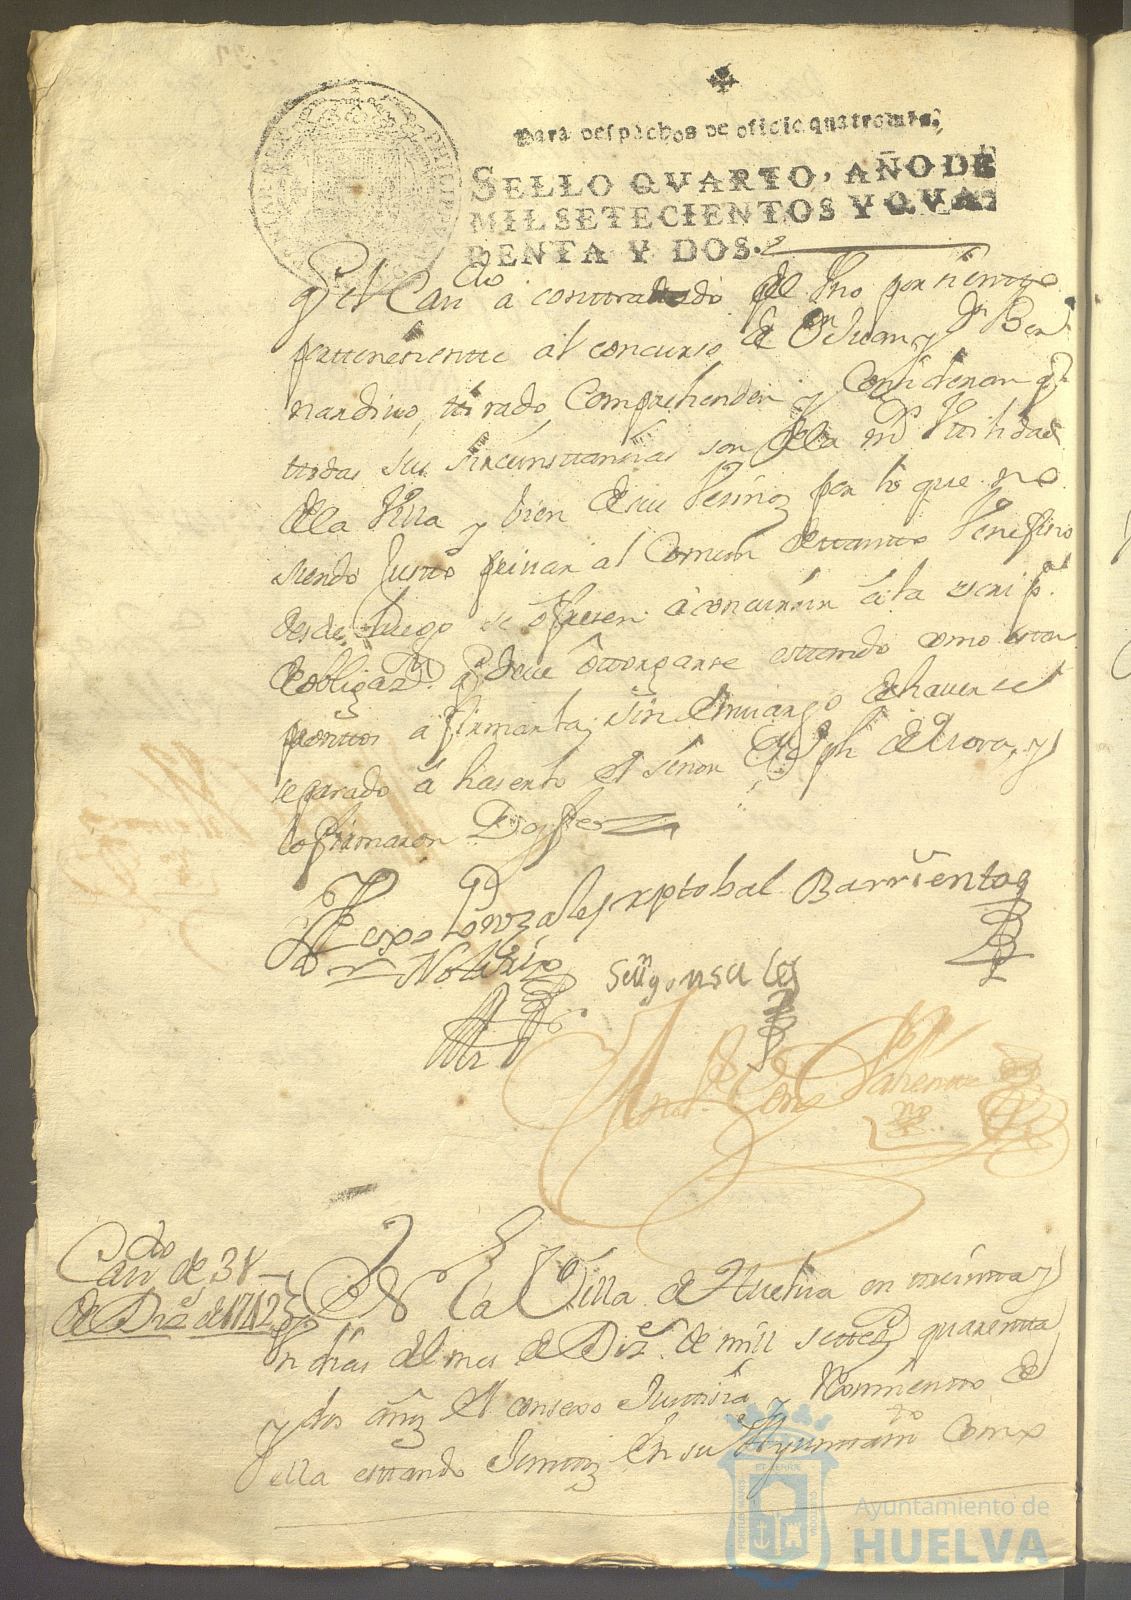 Para despachos de oficio quatro mrs.
SELLO QVARTO, AÑO DE
MIL SETECIENTOS Y QVA
RENTA Y DOS.
q̄ el Cavdo a conttrattado por
perttenesientte al concurso de Dn Juan y Dn Ber
nardino tirado, Comprehenden y Considenan q̄
ttodas sus sircunsttansias son de la mr Vttilidad
de la Villa y bien de sus Vesinos por lo que no
siendo Justto privar al Comun de ttantto Venefisio
desde Luego se ofresen a concurrir a la escripa
de obligazn q̄ deve ottorgarse esttando como esttan
prontos a firmarla, sin Embargo de haverse
separado a haserlo el señor Joseph de Mora, y
lo firmaron Doy fee
Gonzales xptobal Barrientos
Notario
gonsales
Cavdo de 31
de Dize de 1742
EN la Villa de Huelva en ttreintta y
Un dias del mes de Dize de mill settezs quarentta
y dos años el consexo Justtisia y Reximientto de
ella esttando Junttos En su Ayunttamto Como
Ayuntamiento de
HUELVA